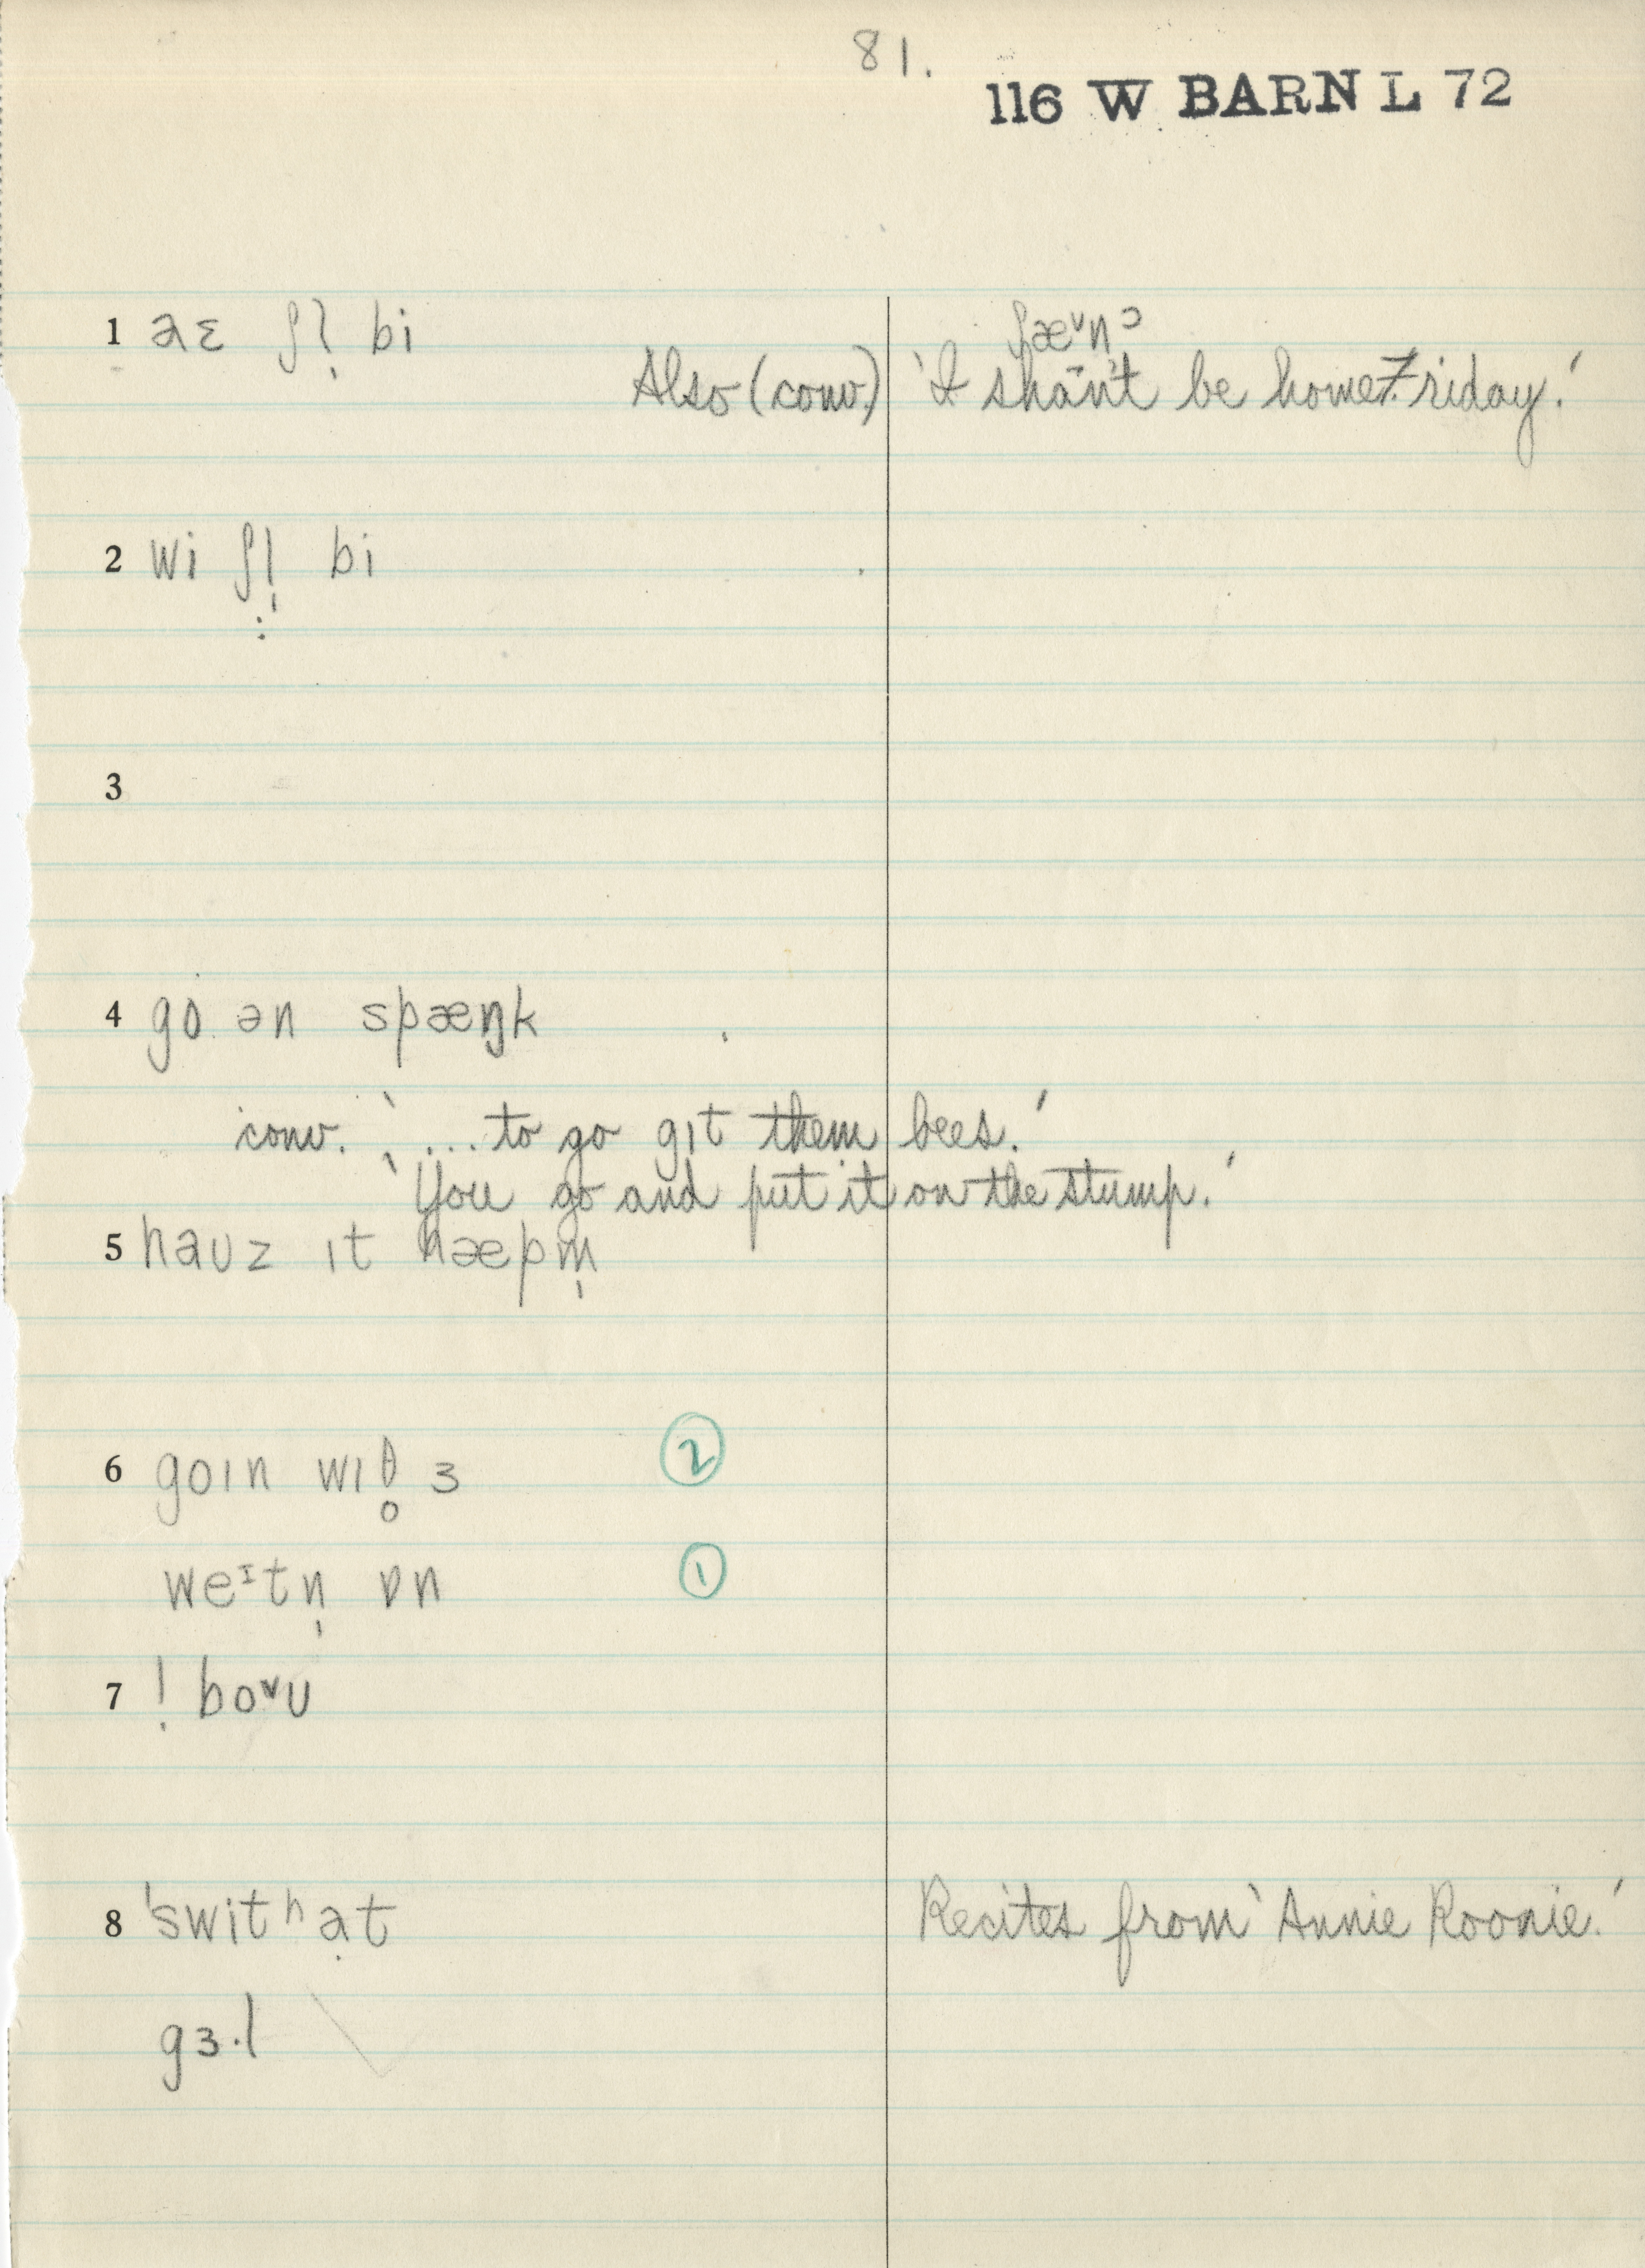 81.
116 W BARN L 72
1 aɛ ʃl̩ bi
ʃæ˅nᵓ
Also (conv.) 'I shān't be home Friday.'
2 wi ʃl̩ bi
3
4 go ən spæŋk
conv. '... to go gɪt them bees.'
'You go and put it on the stump.'
5 haʊz ɪt hæpm̩
6 goɪn wɪð̥ ɜ ②
weᶦtn̩ ɒn ①
7 ! bo˅ʊ
8 'switʰạt Recites from 'Annie Roonie.'
gɜ·l